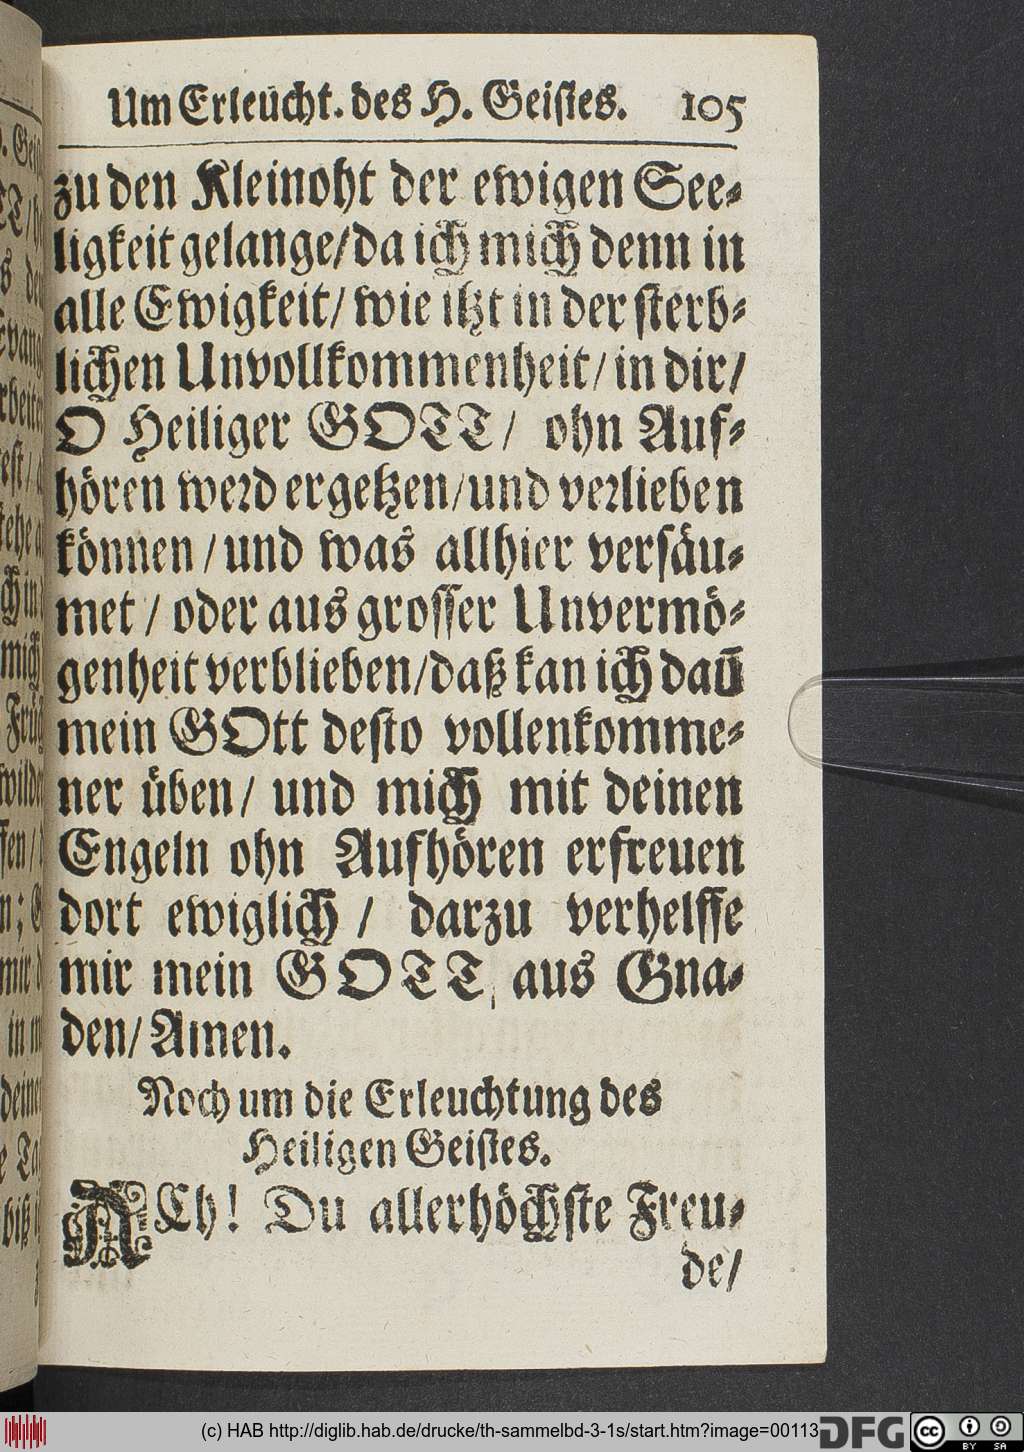 Um Erleucht. des H. Geistes. 105
zu den Kleinoht der ewigen See-
ligkeit gelange/da ich mich denn in
alle Ewigkeit/ wie itzt in der sterb-
lichen Unvollkommenheit/ in dir/
O Heiliger GOTT/ ohn Auf-
hören werd ergetzen/und verlieben
können/und was allhier versäu-
met / oder aus grosser Unvermö-
genheit verblieben/daß kan ich dañ
mein GOtt desto vollenkomme-
ner üben/ und mich mit deinen
Engeln ohn Aufhören erfreuen
dort ewiglich / darzu verhelffe
mir mein GOTT, aus Gna-
den/ Amen.
Noch um die Erleuchtung des
Heiligen Geistes.
ACh! Du allerhöchste Freu-
de/
(c) HAB http://diglib.hab.de/drucke/th-sammelbd-3-1s/start.htm?image=00113
DFG
cc BY SA